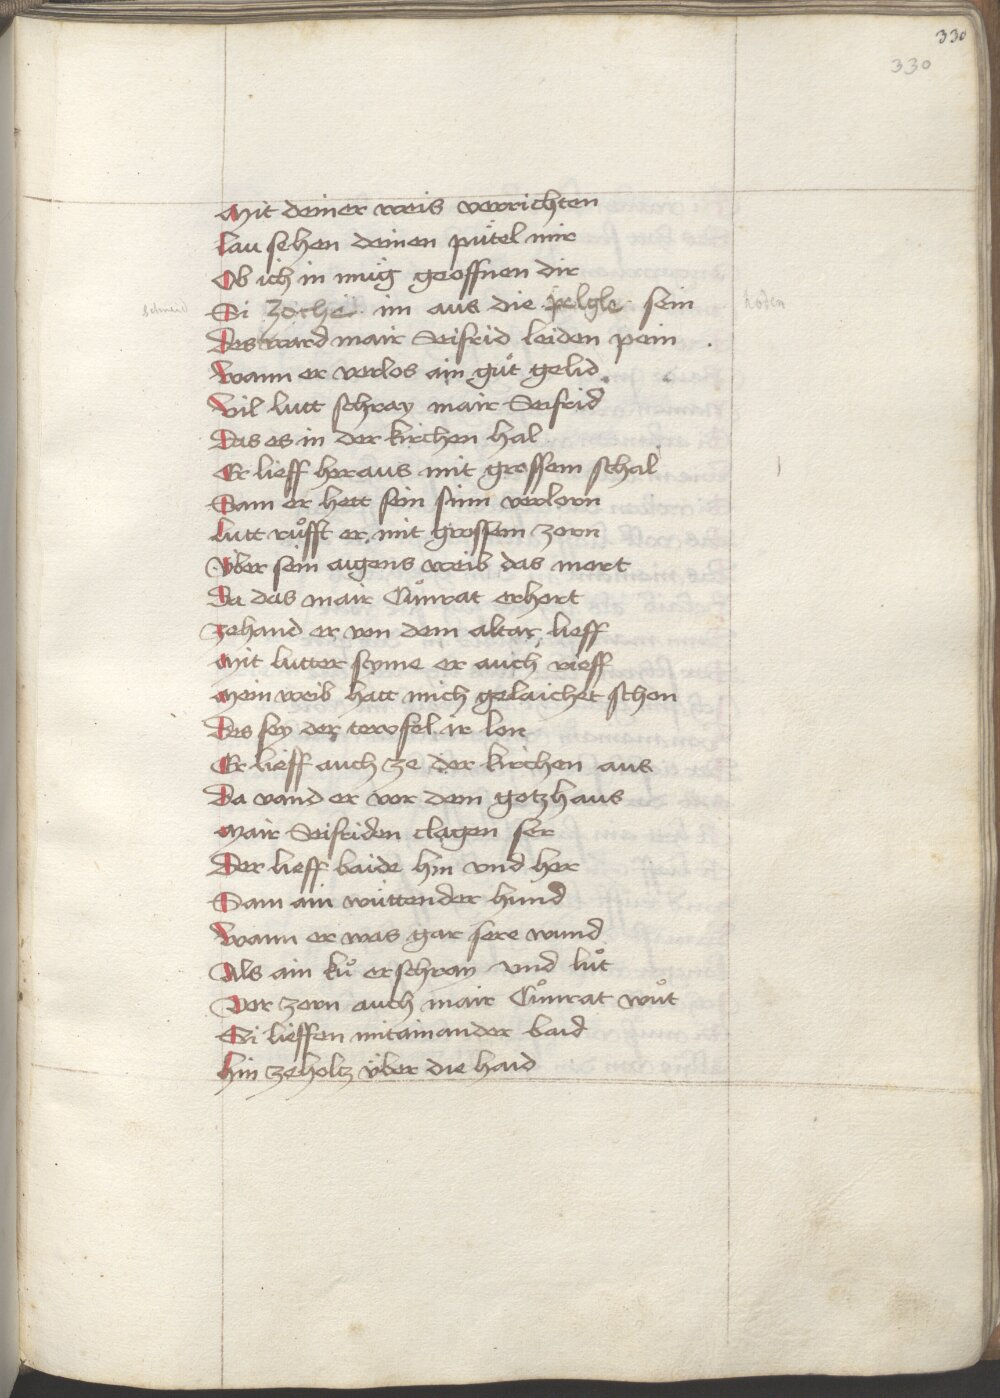 330
330
Mit deiner weis verrichten
lau sehen deinen pütel mir
Ob ich in müg geoffnen dir
Si zoche im aus die pelgle sein
hoden
Des ward mair Seifrid leiden pein
Wann er verlos ain gůt gelid
Vil lutt schray mair Seifrid
Das es in der kirchen hal
Er lieff heraus mit grossem schal
Sam er hett sein sinn verlorn
lutt růfft er mit grossem zorn
Über sein aigens weib das mort
Da das mair Cůnrat erhort
zehand er von dem altar lieff
Mit lutter styme er auch rieff
Mein weib hatt mich gelaichet schon
Des sey der tewfel ir lon
Er lieff auch ze der kirchen aus
Da vand er vor dem gotzhaus
Mair Seifriden clagen ser
Der lieff baide hin vnd her
Sam ain wüttender hund
Wann er was gar sere wund
Als ain ků er schray vnd lůt
Vor zorn auch mair Cůnrat wůt
Si lieffen mitainander baid
hin ze holtz über die haid